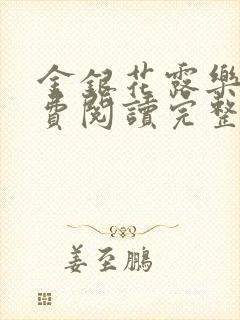 金銀花露樂
費閱讀完整
姜至鵬